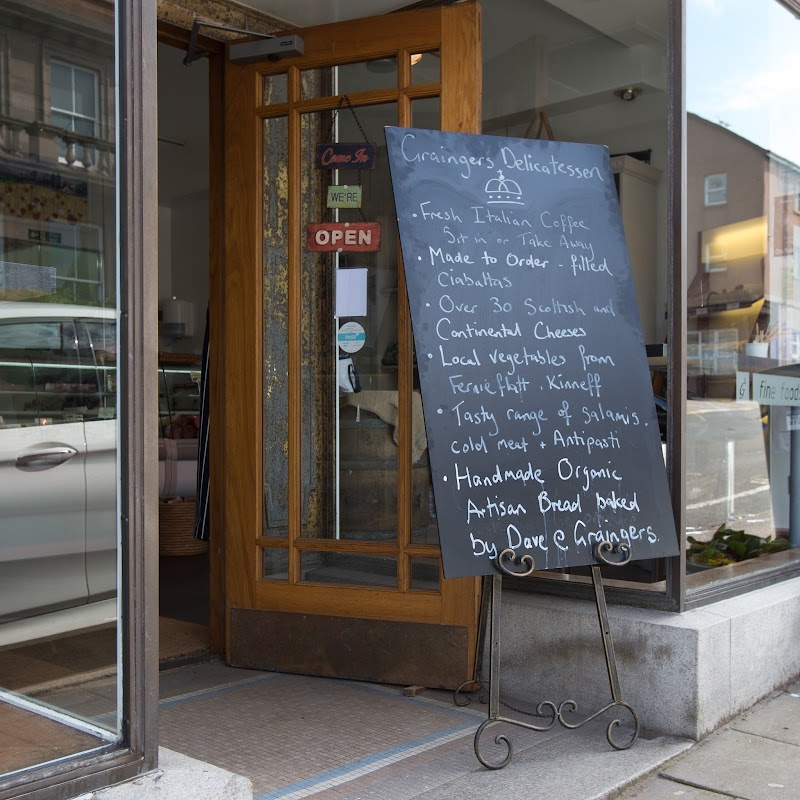 Come In
WE'RE
OPEN
Graingers Delicatessen
• Fresh Italian Coffee
Sit in or Take Away
• Made to Order - filled
Ciabattas
• Over 30 Scottish and
Continental Cheeses
• Local vegetables from
Fernieflatt, Kinneff
• Tasty range of Salamis.
cold meat + Antipasti
• Handmade Organic
Artisan Bread baked
by Dave @ Graingers.
G
fine foods